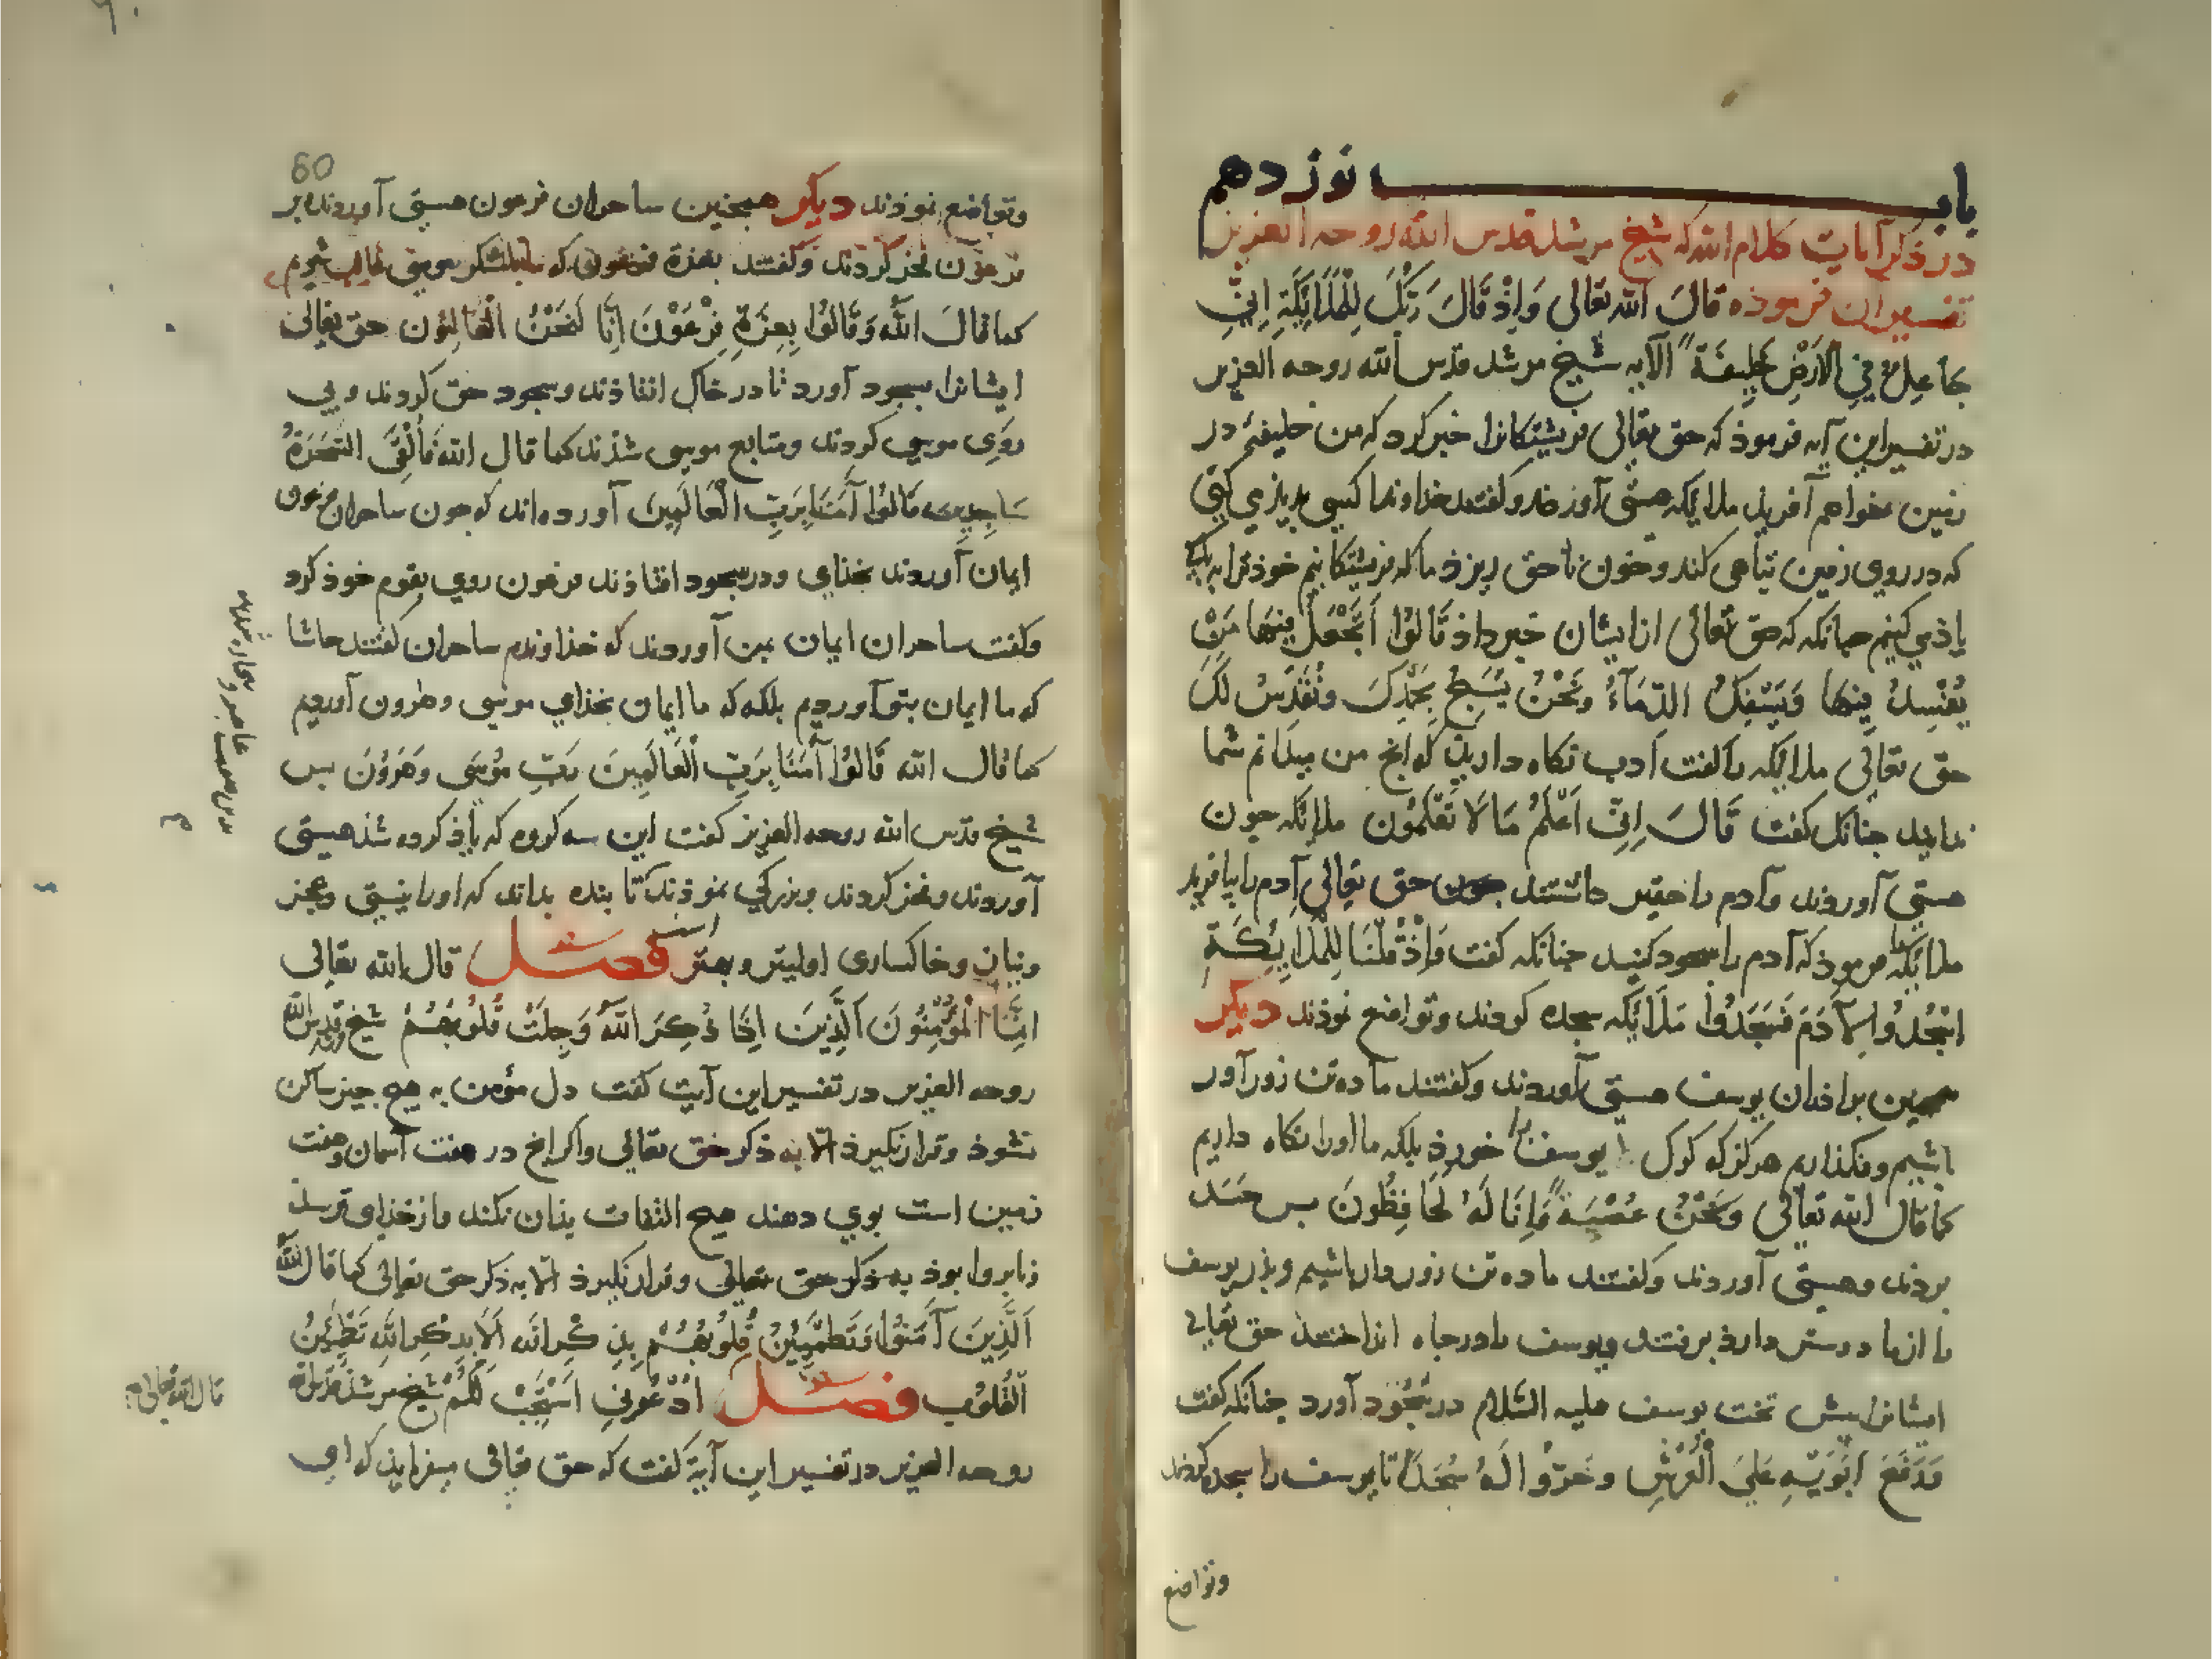 باب نوزدهم
در ذکر آیات کلام الله که شیخ مرشد قدس الله روحه العزیز
تفسیر ان فرموذه قالَ الله تعالی وَاِذْ قَالَ رَبُّكَ لِلْمَلَائِكَةِ اِنِّي
جَاعِلٌ فِي الْاَرْضِ خَلِیفَةً الآیه شیخ مرشد قدس الله روحه العزیز
در تفسیر این آیه فرموذ که حق تعالی فریشتکانرا خبر کرد که من خلیفتی در
زمین بخواهم آفرید ملایکه هستی آوردند و کفتند خداوندا کسی بدید می کنی
که در روی زمین تباهی کند و خون ناحق ریزد ما که فریشتکانیم خوذ ترا به پاکی
یاذ می کنیم جنانکه که حق تعالی از ایشان خبر داذ قَالُوا اَتَجْعَلُ فِيهَا مَنْ
يُفْسِدُ فِيهَا وَيَسْفِكُ الدِّمَآءَ وَنَحْنُ نُسَبِّحُ بِحَمْدِكَ وَنُقَدِّسُ لَكَ
حق تعالی ملایکه را کفت ادب نکاه دارید که انج من میدانم شما
ندانید جنانک کفت قَالَ اِنِّي اَعْلَمُ مَا لَا تَعْلَمُون ملایکه جون
هستی آوردند و آدم را حقیر داشتند جون حق تعالی آدم را بیافرید
ملایکه را فرموذ که آدم را سجود کنید جنانکه کفت وَاِذْ قُلْنَا لِلْمَلَایِکَةِ
اسْجُدُوا لِآدَمَ فَسَجَدُوا مَلَایکه سجده کردند و تواضع نموذند دیکر
همجنین براذران یوسف هستی آوردند و کفتند ما ده تن زورآور
باشیم و نکذاریم هرکز که کرک یوسف را خورد بلکه ما اورا نکاه داریم
کما قال الله تعالی وَنَحْنُ عُصْبَةٌ وَاِنَّا لَهُ لَحَافِظُونَ بس حسد
بردند و هستی آوردند و کفتند ما ده تن زوردار باشیم و بذر یوسف
را از ما دوستر دارد برفتند و یوسف را در جاه انداختند حق تعالی
ایشانرا بیش تخت یوسف علیه السَّلام در سُجُود آورد جنانکه کفت
وَرَفَعَ اَبَوَيْهِ عَلَي الْعَرْشِ وخَرُّوا لَهُ سُجَّدًا تا یوسف را سجده کردند
وتواضع
60
وتواضع نموذند دیکر همجنین ساحران فرعون هستی آوردند بر
فرعون فخر کردند و کفتند بعزة فرعون که ما بلشکر موسی غالب شویم
کما قالَ اللّه وَقَالُوا بِعِزَّةِ فِرْعَوْنَ اِنَّا لَنَحْنُ الْغَالِبُون حق تعالی
ایشانرا بسجود آورد تا در خاک افتاذند و سجود حق کردند و بی
روی موسی کردند و متابع موسی شذند کما قال الله فَأُلْقِيَ السَّحَرَةُ
سَاجِدِینَ قَالُوا آمَنَّا بِرَبِّ الْعَالَمِینَ آورده اند که جون ساحران فرعون
ایمان آوردند بخذای و در سجود افتاذند فرعون روی بقوم خوذ کرد
وکفت ساحران ایمان بمن آوردند که خذاوندم ساحران کفتند حاشا
که ما ایمان بتو آوردیم بلکه که ما ایمان بخذای موسی و هرون آوردیم
کما قال الله قَالُوا آمَنَّا بِرَبِّ الْعَالَمِینَ رَبِّ مُوسَی وَهَرُونَ بس
شیخ قدس الله روحه العزیز کفت این سه کروه که یاذ کرده شذ هستی
آوردند و فخر کردند و بزرکی نموذند تا بنده بداند که اورا نیستی و عجز
ونیاز و خاکساری اولیتر و بهتر است فصل قال الله تعالی
اِنَّمَا الْمُؤْمِنُونَ اَلَّذِینَ اِذَا ذُکِرَ اللّهُ وَجِلَتْ قُلُوبُهُمْ شیخ قدس الله
روحه العزیز در تفسیر این آیت کفت دل مؤمن به هیج جیز ساکن
نشود و قرار نکیرد الا به ذکر حق تعالی و اکر انج در هفت آسمان و هفت
زمین است بوی دهند هیج التفات بذان نکند و از خذای ترسد
بروا بوذ به ذکر حق تعالی و قرار نکیرد الا به ذکر حق تعالی کما قال الله
اَلَّذِینَ آمَنُوا وَتَطْمَئِنُّ قُلُوبُهُمْ بِذِکْرِ الله اَلَا بِذِکْرِ اللهِ تَطْمَئِنُّ
الْقُلُوب فصل اُدْعُونِي اَسْتَجِبْ لَکُمْ شیخ مرشد قدس الله
روحه العزیز در تفسیر این آیة کفت که حق تعالی میفرماید که ای
قال الله تعالی